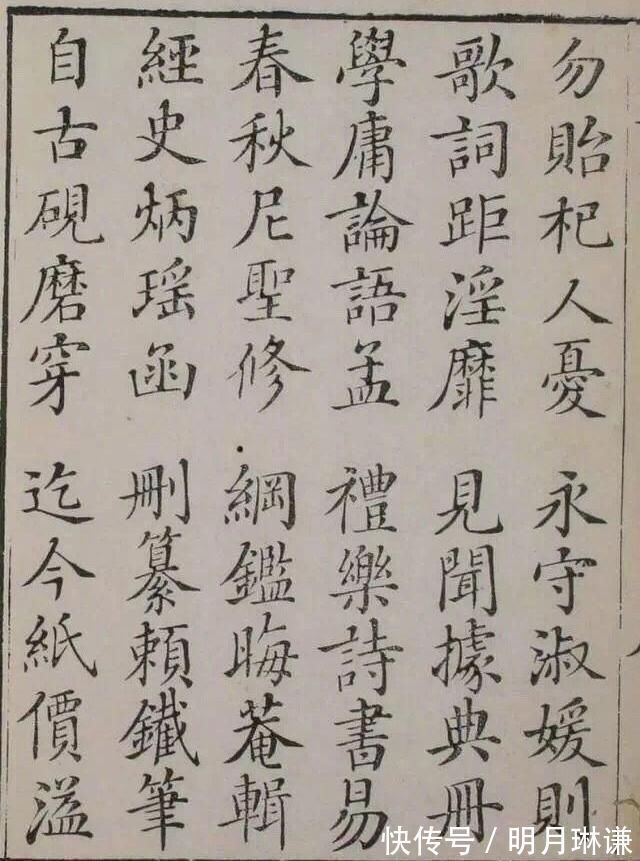 勿貽杞人憂 永守淑媛則
歌詞距淫靡 見聞據典冊
學庸論語孟 禮樂詩書易
春秋尼聖修 綱鑑晦菴輯
經史炳瑶函 刪纂賴鐵筆
自古硯磨穿 迄今紙價溢
快传号/明月琳谦